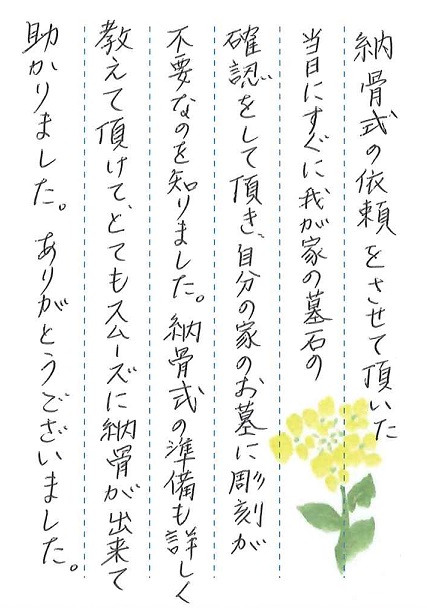 納骨式の依頼をさせて頂いた
当日にすぐに我が家の墓石の
確認をして頂き、自分の家のお墓に彫刻が
不要なのを知りました。納骨式の準備も詳しく
教えて頂けて、とてもスムーズに納骨が出来て
助かりました。ありがとうございました。